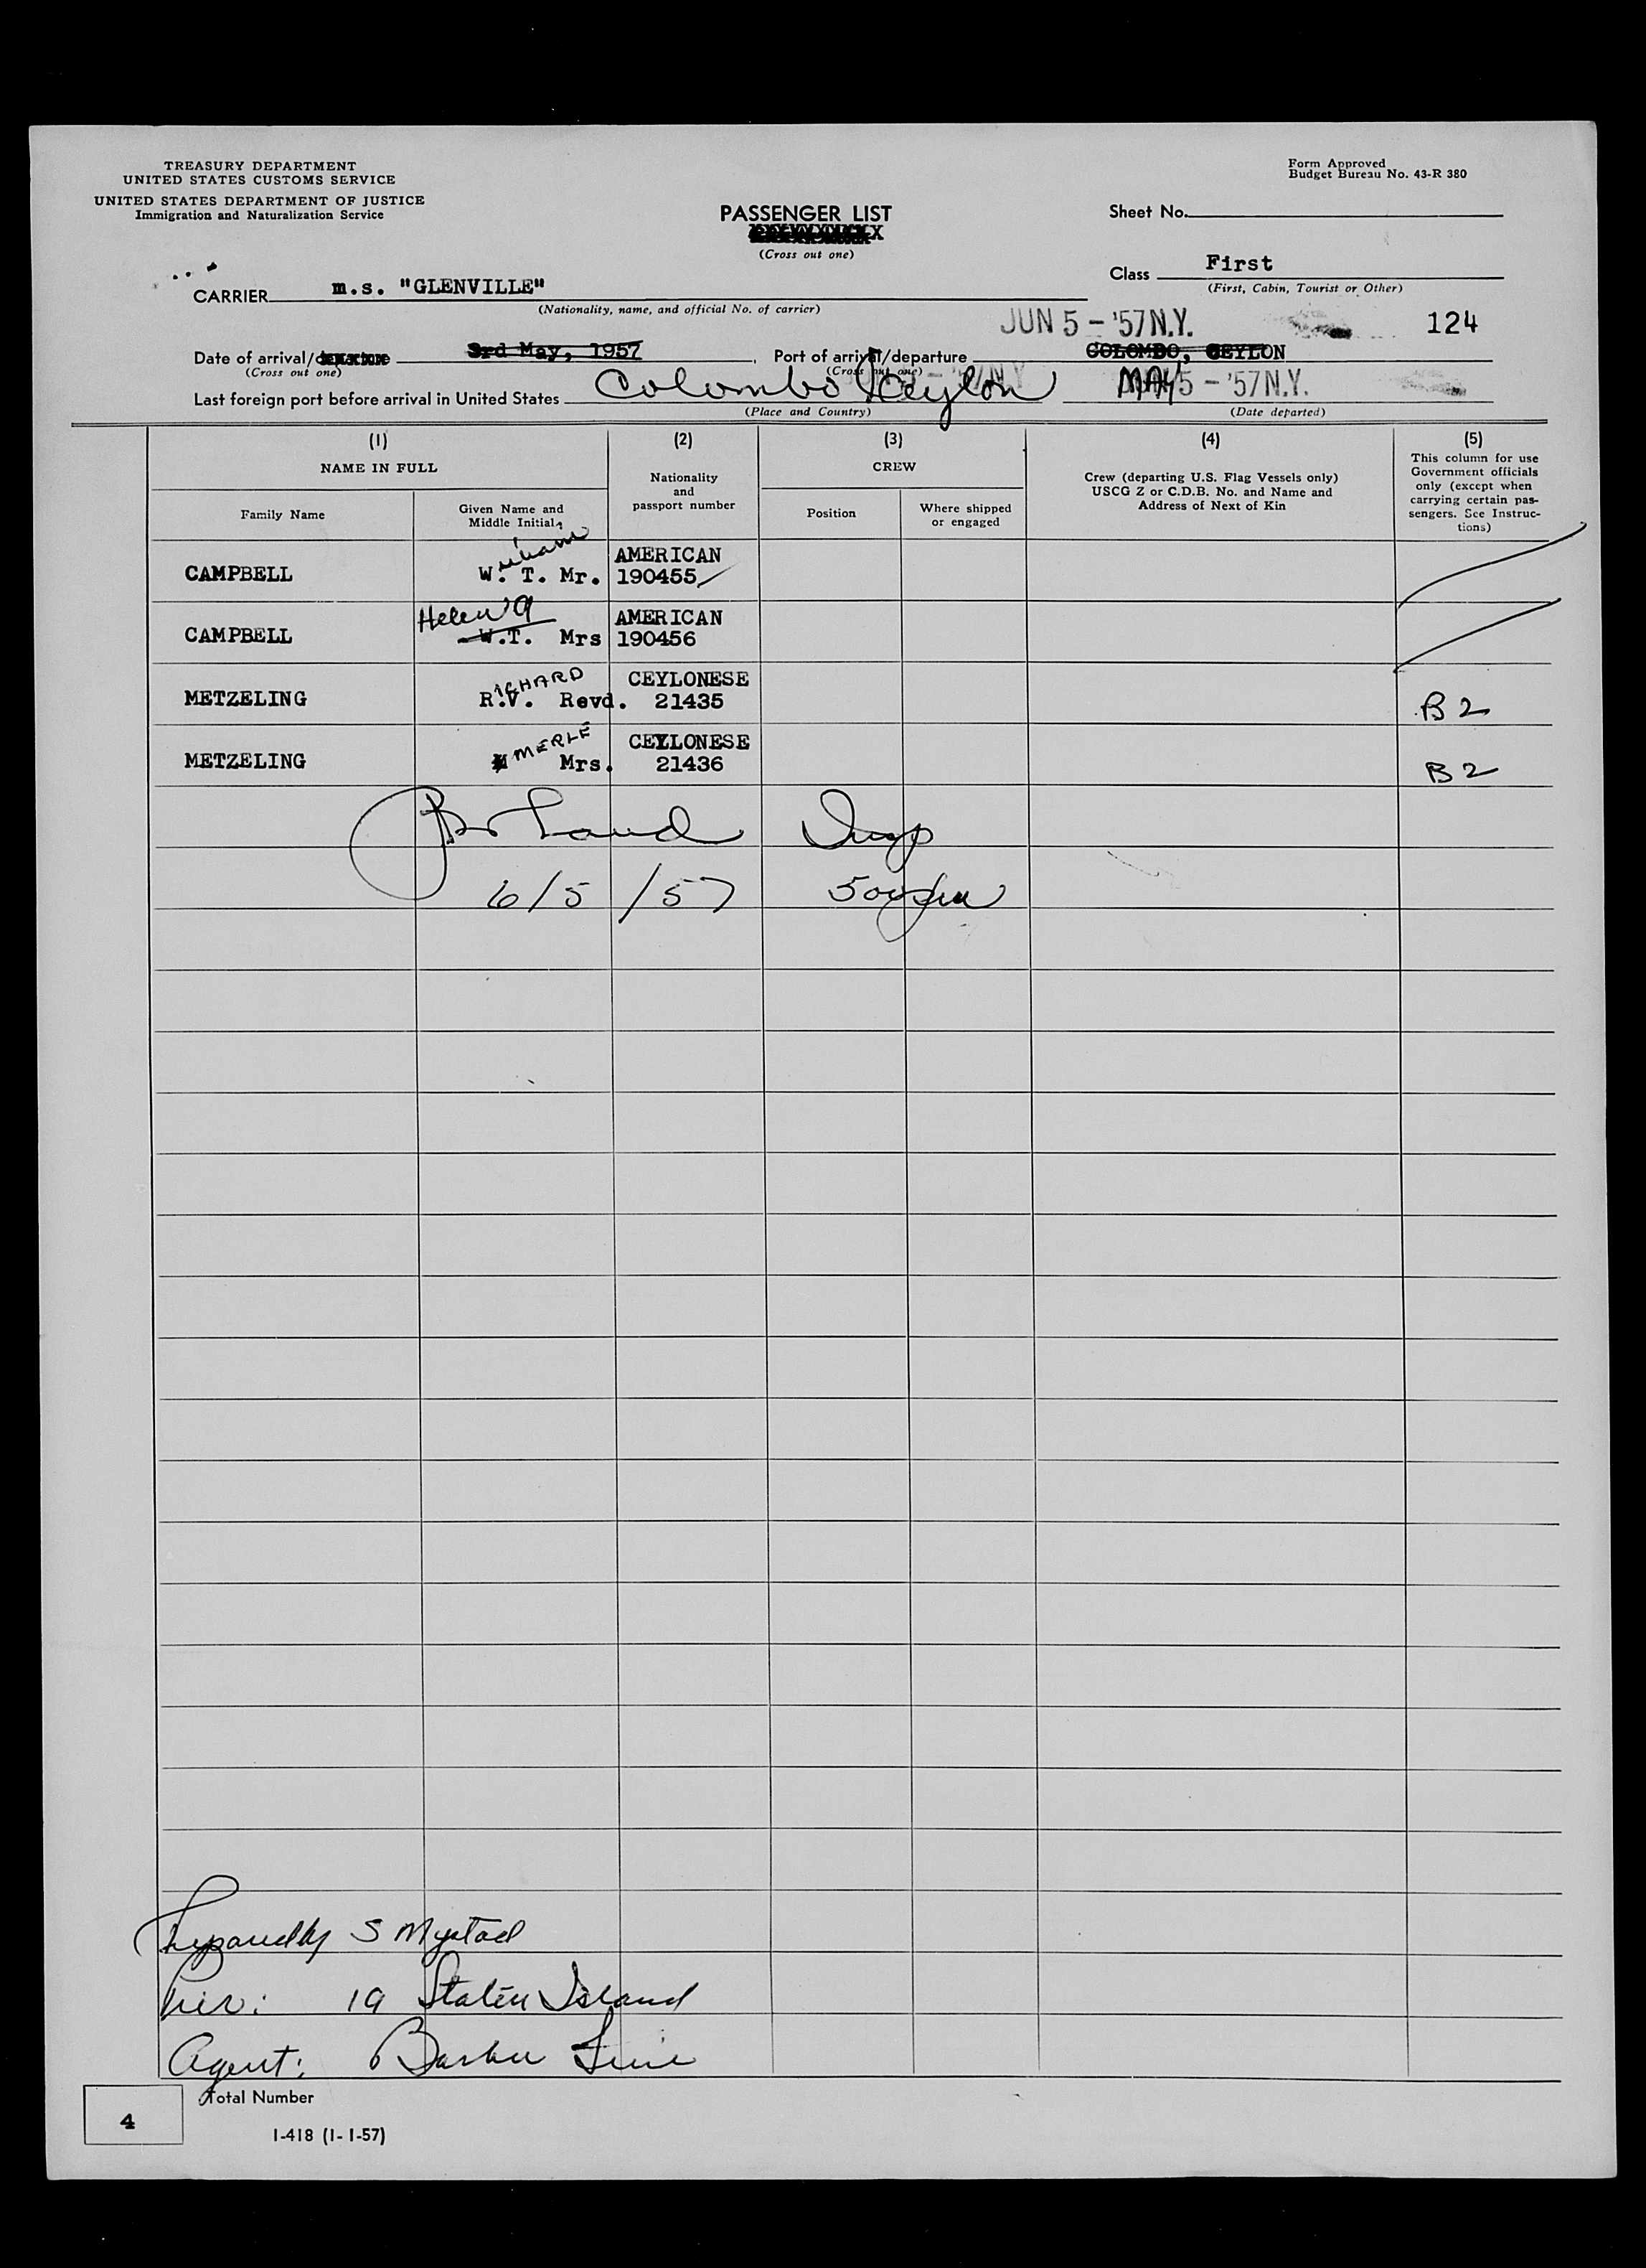 TREASURY DEPARTMENT
UNITED STATES CUSTOMS SERVICE
UNITED STATES DEPARTMENT OF JUSTICE
Immigration and Naturalization Service
Form Approved
Budget Bureau No. 43-R 380
PASSENGER LIST
(Cross out one)
Sheet No.
Class First
(First, Cabin, Tourist or Other)
CARRIER m.s. "GLENVILLE"
(Nationality, name, and official No. of carrier)
JUN 5 - '57 N.Y.
124
Date of arrival/departure 3rd May, 1957 Port of arrival/departure COLOMBO, CEYLON
(Cross out one) (Cross out one)
Last foreign port before arrival in United States Colombo Ceylon MAY 5 - '57 N.Y.
(Place and Country) (Date departed)
(1) (2) (3) (4) (5)
NAME IN FULL
Family Name
Given Name and
Middle Initial
Nationality
and
passport number
CREW
Position
Where shipped
or engaged
Crew (departing U.S. Flag Vessels only)
USCG Z or C.D.B. No. and Name and
Address of Next of Kin
This column for use
Government officials
only (except when
carrying certain pas-
sengers. See Instruc-
tions)
illiam AMERICAN
CAMPBELL W. T. Mr. 190455
Helen A AMERICAN
CAMPBELL W.T. Mrs 190456
ICHARD CEYLONESE
METZELING R.V. Revd. 21435 B2
MERLE CEYLONESE
METZELING Mrs. 21436 B2
Insp
6/5/57 500 pm
Prepared by S Mystad
Pier: 19 Staten Island
Agent: Barber Line
Total Number
4
I-418 (1-1-57)